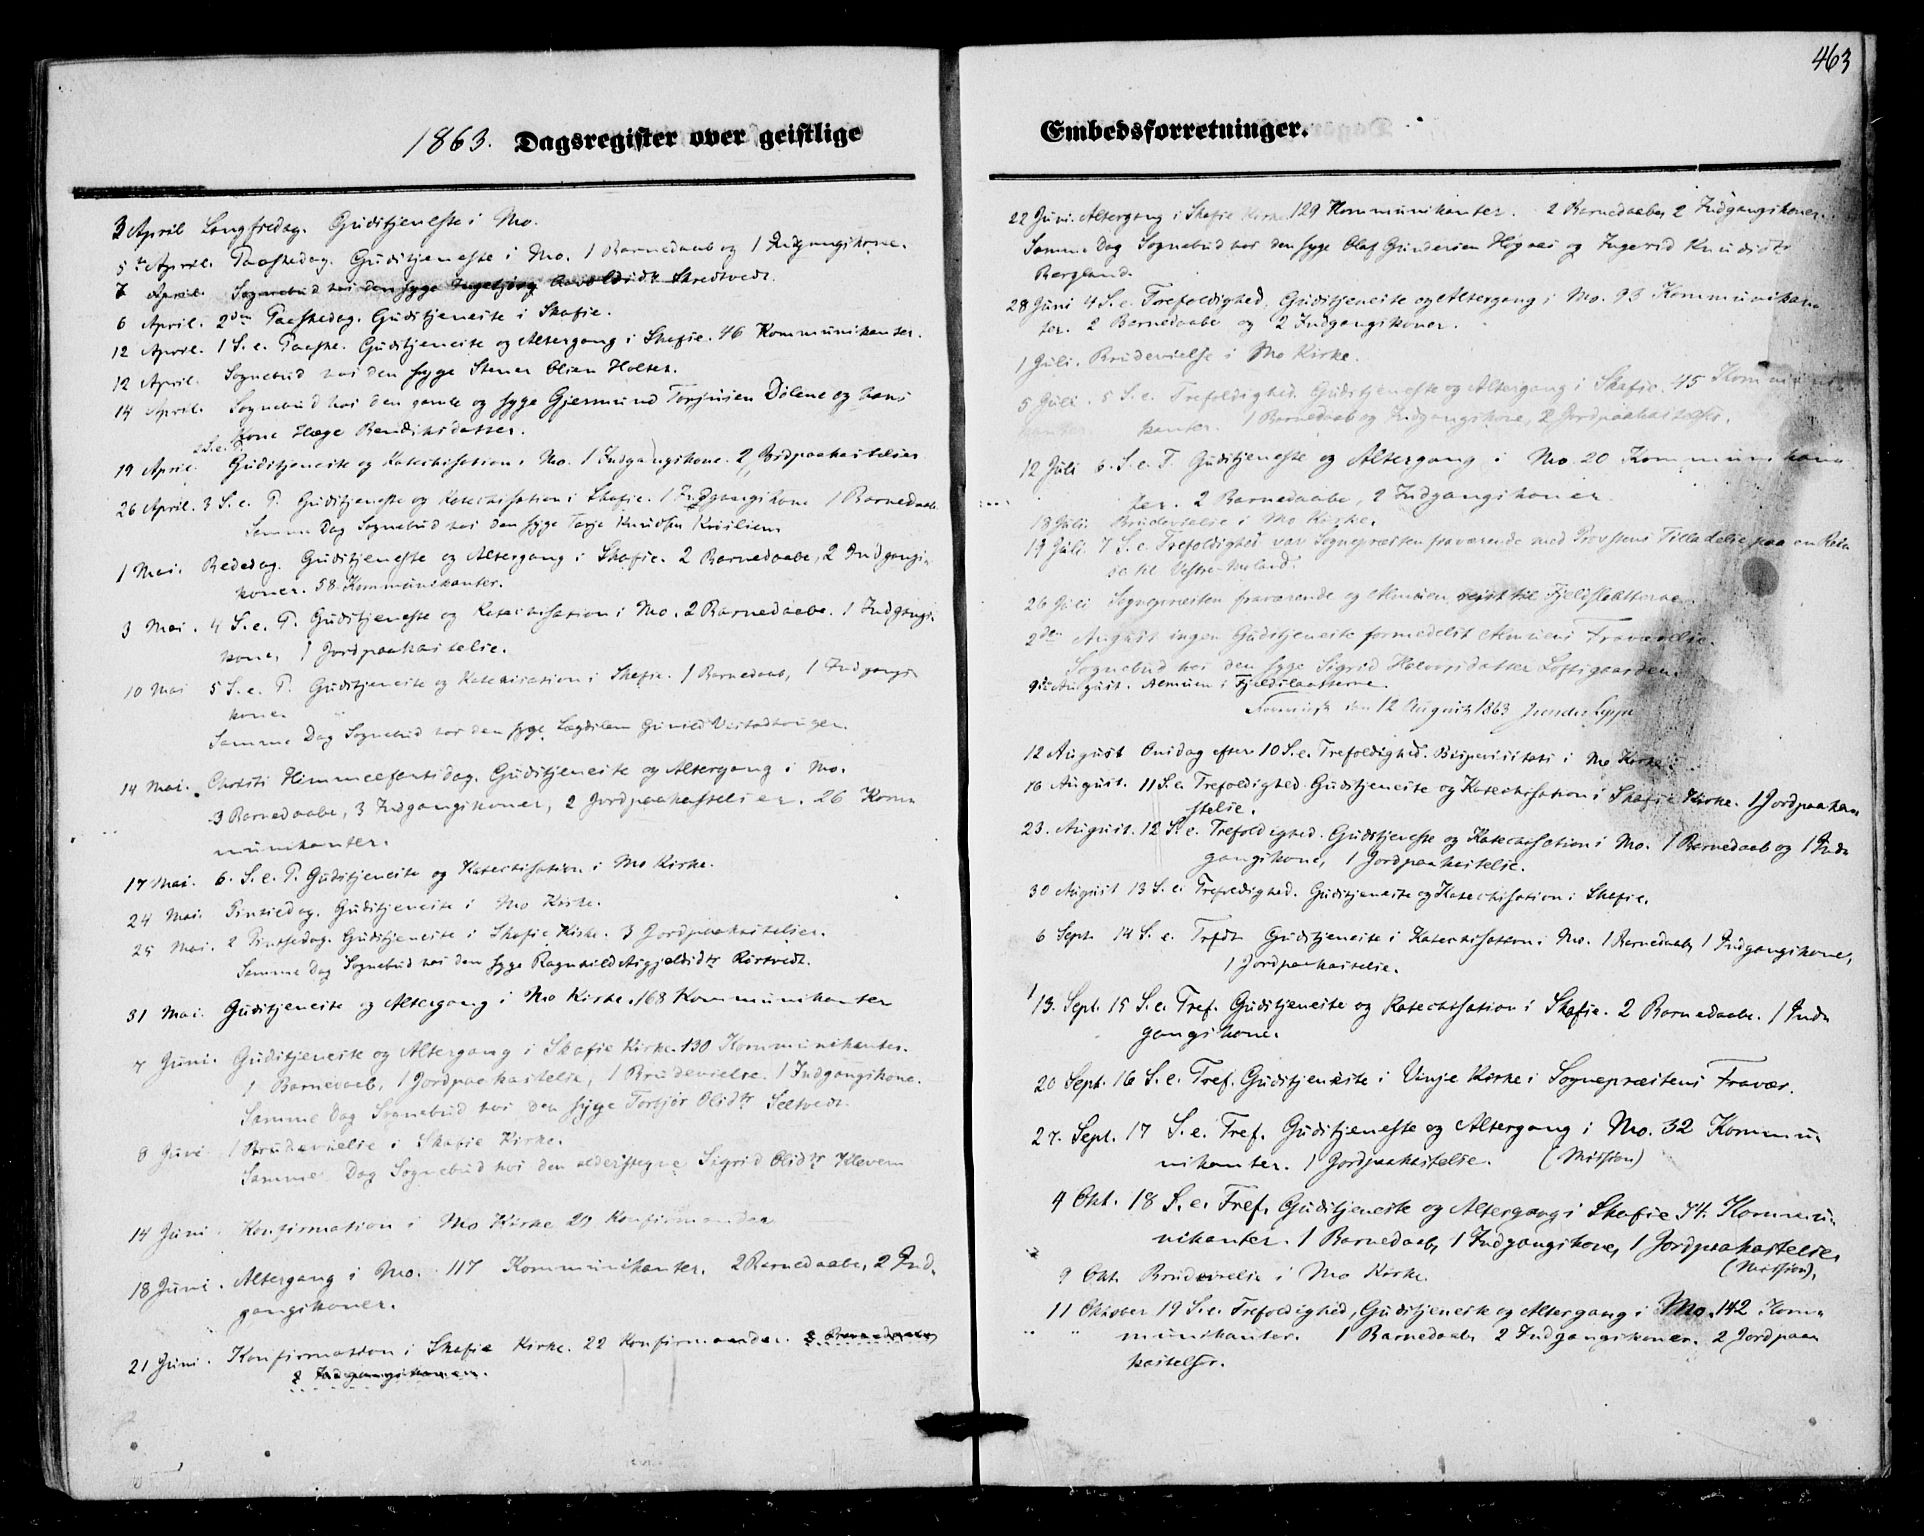 463
1863. Dagsregister over geistlige
3 April Langfredag. Gudstjeneste i Mo.
5te April. Paaskedag. Gudstjeneste i Mo. 1 Barnedaab og 1 Indgangskone.
7 April. Sognebud hos den syge Ingebjørg Skredtvedt.
6 April. 2den Paaskedag. Gudstjeneste i Skafse.
12 April. 1 S. e. Paaske. Gudstjeneste og Altergang i Skafse. 46 Kommunikanter.
12 April. Sognebud hos den syge Stener Olsen Holter.
14 April. Sognebud hos den gamle og syge Gjermund Torjusen Dølene og hans
Kone Hæge Bendiksdatter.
2 S. e. P.
19 April. Gudstjeneste og Katechisation i Mo. 1 Indgangskone. 2 Jordpaakastelser
26 April. 3 S. e. P. Gudstjeneste og Katechisation i Skafse. 1 Indgangskone 1 Barnedaab
Samme Dag Sognebud hos den syge Tarje Knudsen
1 Mai. Bededag. Gudstjeneste og Altergang i Skafse. 2 Barnedaabe, 2 Indgangs-
koner. 58 Kommunikanter.
3 Mai. 4 S. e. P. Gudstjeneste og Katechisation i Mo. 2 Barnedaabe. 1 Indgangs-
kone, 1 Jordpaakastelse.
10 Mai 5 S. e. P. Gudstjeneste og Katechisation i Skafse. 1 Barnedaab, 1 Indgangs-
kone.
Samme Dag Sognebud hos den syge Lægdslem Gunild
14 Mai. Christi Himmelfartsdag. Gudstjeneste og Altergang i Mo.
3 Barnedaabe, 3 Indgangskoner, 2 Jordpaakastelser. 26 Kom-
munikanter.
17 Mai. 6. S. e. P. Gudstjeneste og Katechisation i Mo Kirke.
24 Mai. Pintsedag. Gudstjeneste i Mo Kirke.
25 Mai. 2 Pintsedag. Gudstjeneste i Skafse Kirke. 3 Jordpaakastelser.
Samme Dag Sognebud hos den syge Ragnhild Asgjeldsdtr Rørtvedt.
31 Mai. Gudstjeneste og Altergang i Mo Kirke. 168 Kommunikanter
7 Juni. Gudstjeneste og Altergang i Skafse Kirke. 130 Kommunikanter.
1 Barnedaab, 1 Jordpaakastelse, 1 Brudevielse. 1 Indgangskone.
Samme Dag Sognebud hos den syge Torbjør Olsdtr Seltvedt.
8 Juni 1 Brudevielse i Skafse Kirke.
Samme Dag Sognebud hos den alderstegne Sigrid Olsdtr Kleven
14 Juni. Konfirmation i Mo Kirke 29 Konfirmander
18 Juni. Altergang i Mo. 117 Kommunikanter. 2 Barnedaabe, 2 Ind-
gangskoner.
21 Juni. Konfirmation i Skafse Kirke. 22 Konfirmander. 2 Barnedaabe
2 Indgangskoner.
Embedsforretninger.
22 Juni. Altergang i Skafse Kirke 129 Kommunikanter. 2 Barnedaabe, 2 Indgangskoner.
Samme Dag Sognebud hos den syge Olaf Gundersen Høgaas og Ingerid Knudsdtr
Bergland.
28 Juni 4 S. e. Trefoldighed. Gudstjeneste og Altergang i Mo. 93 Kommunikan-
ter. 2 Barnedaabe og 2 Indgangskoner.
1 Juli. Brudevielse i Mo Kirke.
5 Juli. 5 S. e. Trefoldighed. Gudstjeneste og Altergang i Skafse. 45 Kommuni-
kanter. 1 Barnedaab og Indgangskone, 2 Jordpaakastelser.
12 Juli 6. S. e. T. Gudstjeneste og Altergang i Mo 20 Kommunikan-
ter. 2 Barnedaabe, 2 Indgangskoner
18 Juli. Brudevielse i Mo Kirke.
19 Juli. 7 S. e. Trefoldighed var Sognepræsten fraværende med Provstens Tilladelse paa en Rei-
se til Vestre-Moland.
26 Juli Sognepræsten fraværende og Almuen reist til Fjeldslaatterne.
2den August ingen Gudstjeneste formedelst Almuens Fraværelse.
Sognebud hos den syge Sigrid Halvorsdatter Loftsgaarden.
9de August. Almuen i Fjeldslaatterne
den 12 August 1863
12 August Onsdag efter 10 S. e. Trefoldighed. Bispevisitats i Mo Kirke.
16 August. 11 S. e. Trefoldighed. Gudstjeneste og Katechisation i Skafse Kirke. 1 Jordpaaka-
stelse.
23. August. 12 S. e. Trefoldighed. Gudstjeneste og Katechisation i Mo. 1 Barnedaab og 1 Ind-
gangskone, 1 Jordpaakastelse.
30 August 13 S. e. Trefoldighed. Gudstjeneste og Katechisation i Skafse.
6 Sept. 14 S. e. Trefdt. Gudstjeneste i Katechisation i Mo. 1 Barnedaab, 1 Indgangskone,
1 Jordpaakastelse.
13. Sept. 15 S. e. Tref. Gudstjeneste og Katechisation i Skafse. 2 Barnedaabe. 1 Ind-
gangskone.
20 Sept. 16 S. e. Tref. Gudstjeneste i Vinje Kirke i Sognepræstens Fravær.
27. Sept. 17 S. e. Tref. Gudstjeneste og Altergang i Mo. 32 Kommu-
nikanter. 1 Jordpaakastelse. (Mission)
4 Okt. 18 S. e. Tref. Gudstjeneste og Altergang i Skafse 74. Kommu-
nikanter. 1 Barnedaab, 1 Indgangskone, 1 Jordpaakastelse.
(Mission).
9 Okt. Brudevielse i Mo Kirke.
11 Oktober 19 S. e. Trefoldighed, Gudstjeneste og Altergang i Mo. 142 Kom-
munikanter. 1 Barnedaab, 2 Indgangskoner. 2 Jordpaa-
kastelser.